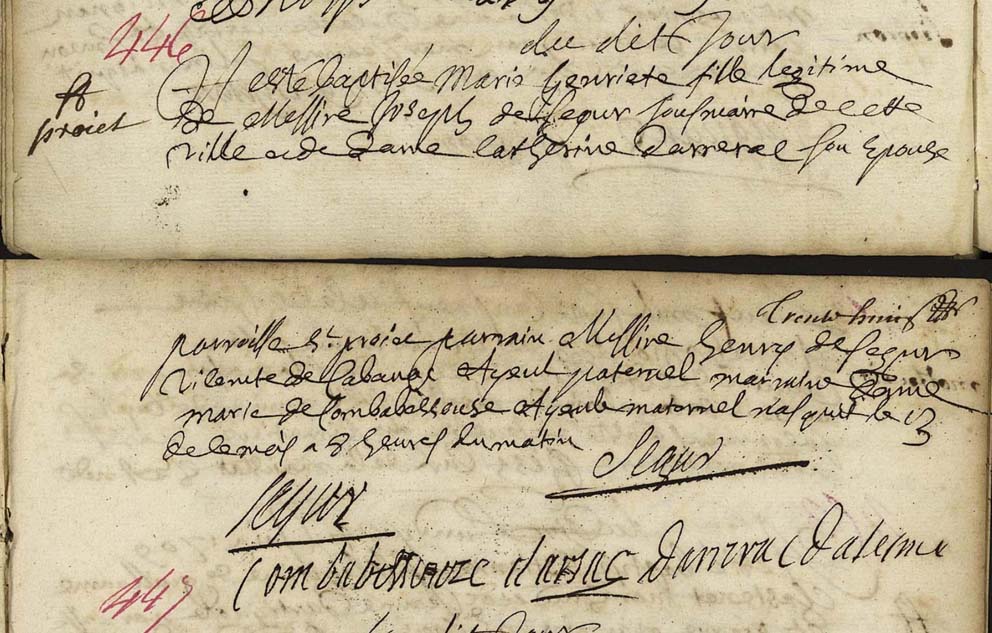 446
du dit Jour
A esté baptisée Marie henriete fille legitime
St
proiet
de Messire Joseph de Segur sousmaire de cette
ville et de dame Catherine darrerac son Epouse
Trente huit
parroisse St proiet parrain Messire henry de Segur
vicomte de Cabanac Ayeul paternel marraine Dame
marie de Combabessouse Ayeule maternel nasquit le 13
de ce mois a 8 heures du matin
Segur
Segur
Combabessouze darsac
447
du dit Jour